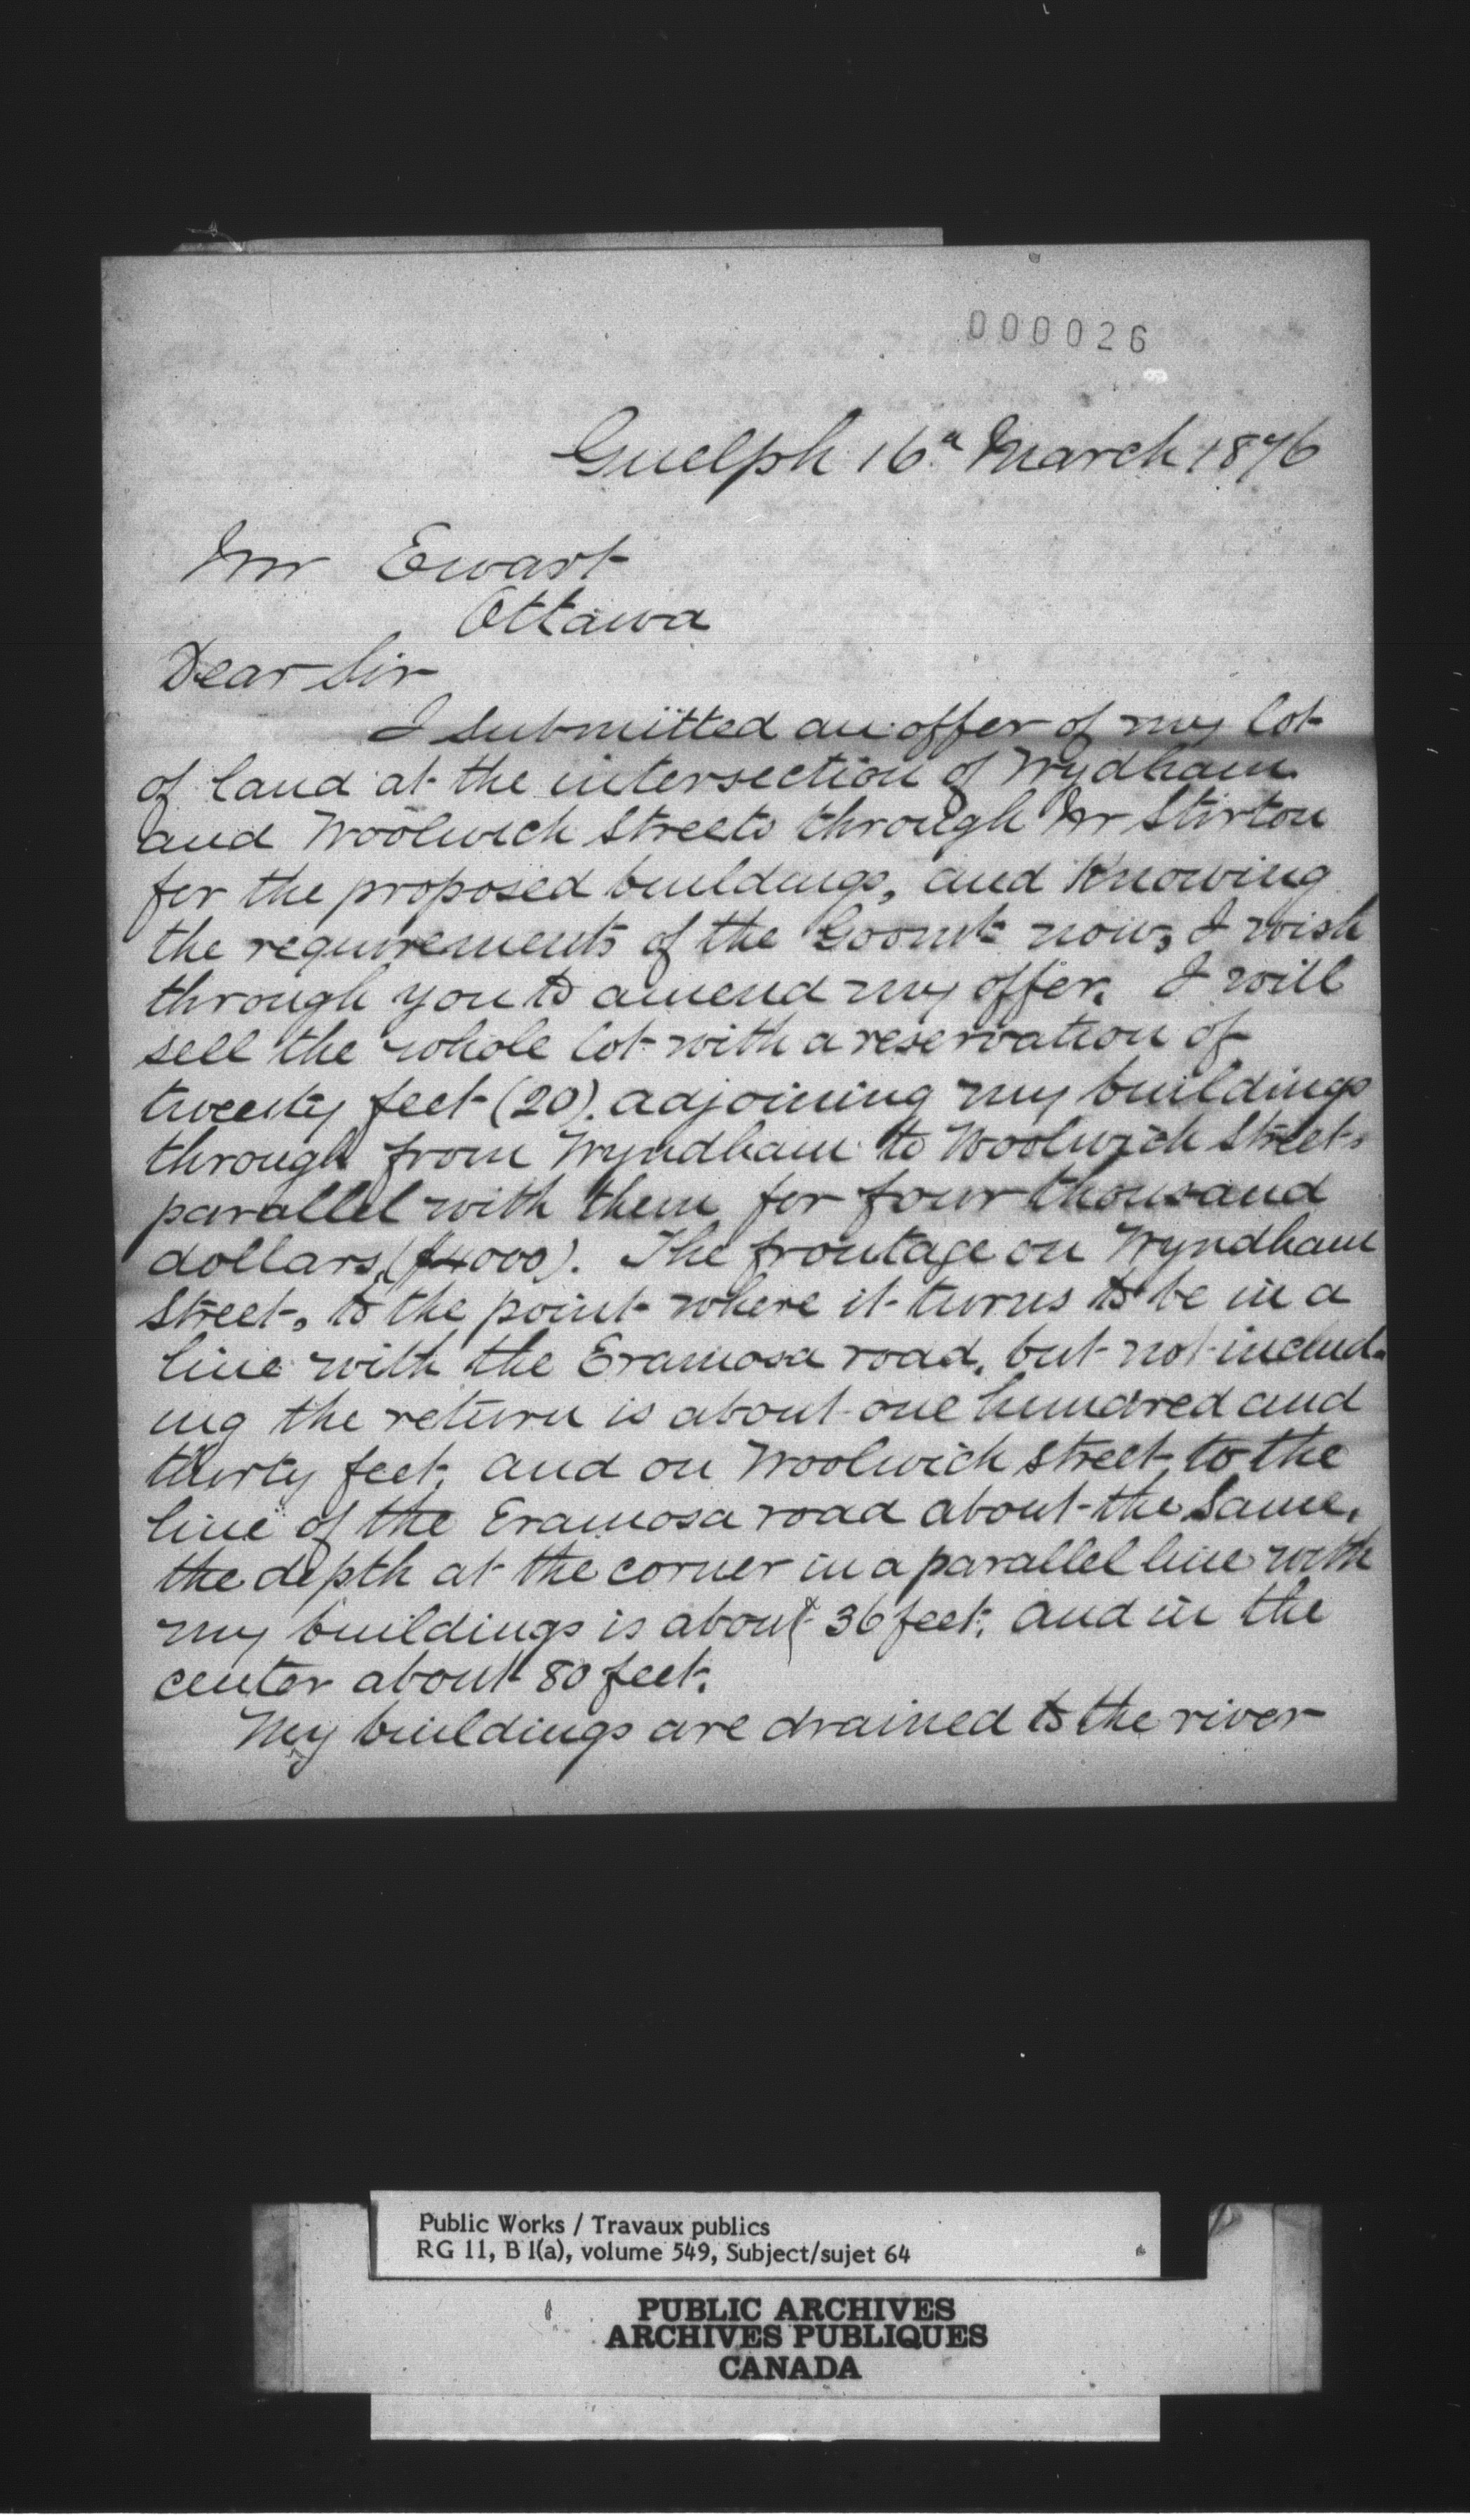 000026
Guelph 16th March 1876
Mr Ewart
Ottawa
Dear Sir
I submitted an offer of my lot
of land at the intersection of Wydham
and Woolwich Streets through Mr Stirton
for the proposed buildings, and Knowing
the requirements of the Govmt now, I wish
through you to amend my offer. I will
sell the whole lot with a reservation of
twenty feet (20). adjoining my buildings
through from Wyndham to Woolwich Street,
parallel with them for four thousand
dollars, ($4000). The frontage on Wyndham
Street, to the point where it turns to be in a
line with the Eramosa road, but not includ-
ing the return is about one hundred and
thirty feet, and on Woolwich street, to the
line of the Eramosa road about the same,
the depth at the corner in a parallel line with
my buildings is about 36 feet, and in the
center about 80 feet.
My buildings are drained to the river
Public Works / Travaux publics
RG 11, B 1(a), volume 549, Subject/sujet 64
PUBLIC ARCHIVES
ARCHIVES PUBLIQUES
CANADA